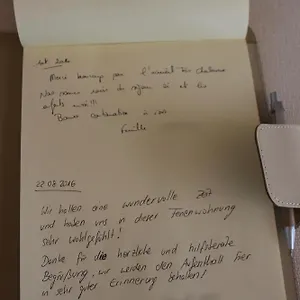 Août 2016
Merci beaucoup pour l'accueil très chaleureux
Nous sommes ravis du séjour ici et les
enfants aussi!!!
Bonne continuation à vous
Famille
22.08.2016
Wir hatten eine wundervolle Zeit
und haben uns in dieser Ferienwohnung
sehr wohlgefühlt!
Danke für die herzliche und hilfsbereite
Begrüßung, wir werden den Aufenthalt hier
in sehr guter Erinnerung behalten!